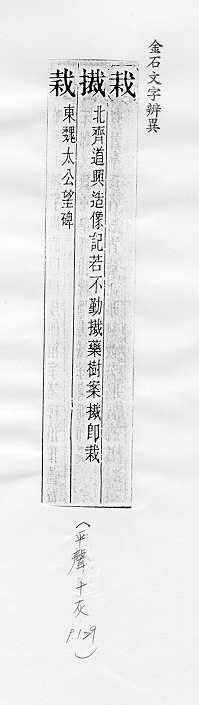 金石文字辨異
栽
擮北齊道興造像記若不勤擮藥樹案擮即栽
栽東魏太公望碑
(平聲十灰 P.139)